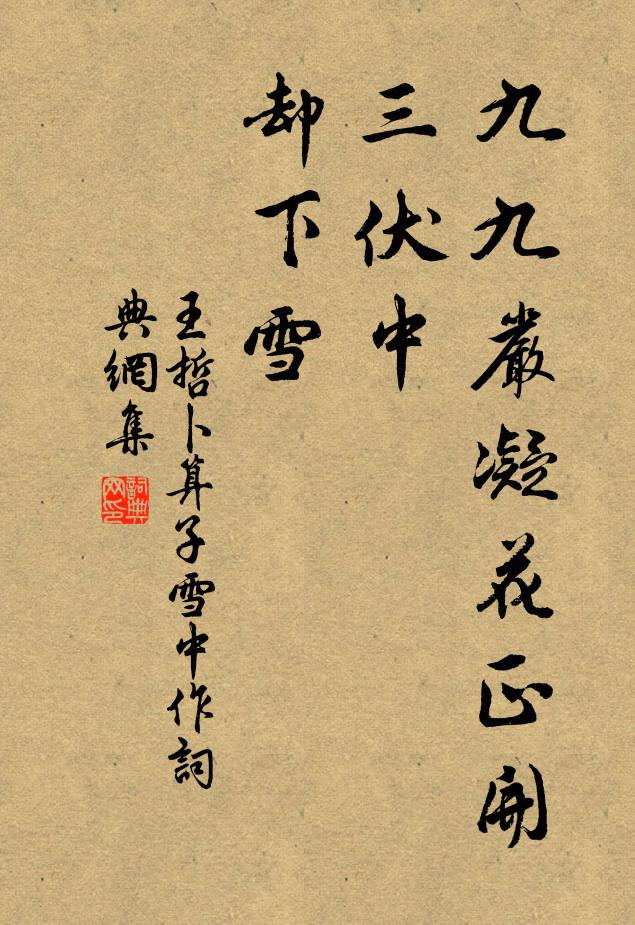 九九嚴凝花正開
三伏中
却下雪
王哲卜算子雪中作詞
典網集
詞典网印